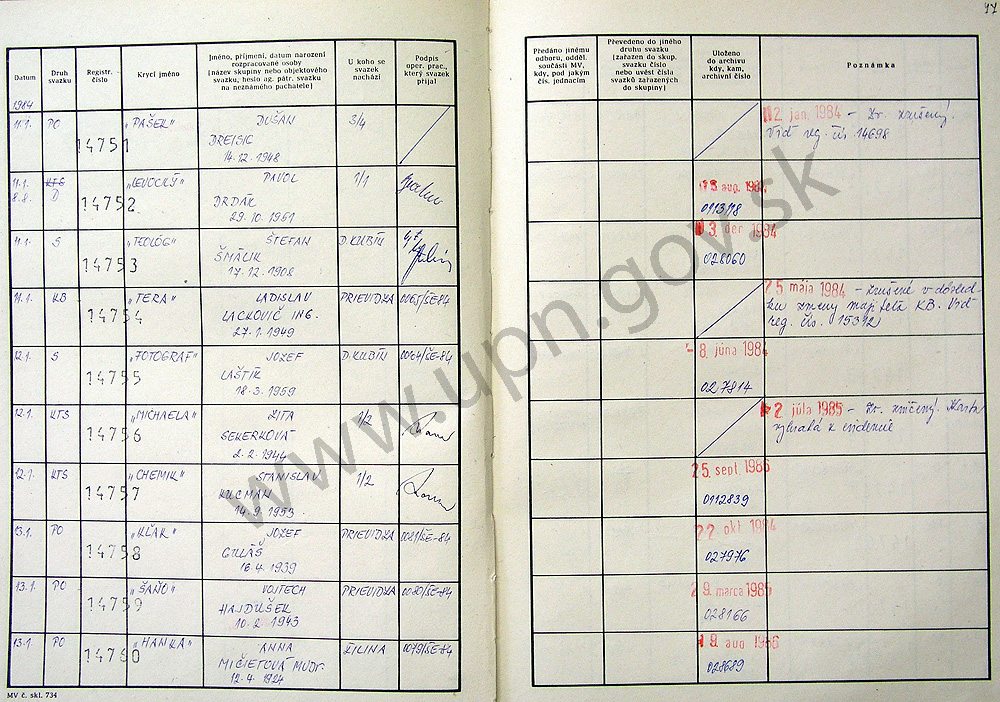 77
Datum
Druh svazku
Registr. číslo
Krycí jméno
Jméno, příjmení, datum narození
rozpracované osoby
(název skupiny nebo objektového
svazku, heslo ag. pátr. svazku
na neznámého pachatele)
U koho se
svazek
nachází
Podpis
oper. prac.,
který svazek
přijal
Předáno jinému
odboru, odděl.
součásti MV,
kdy, pod jakým
čís. jednacím
Převedeno do jiného
druhu svazku
(zařazen do skup.
svazku číslo
nebo uvést čísla
svazků zařazených
do skupiny)
Uloženo
do archivu
kdy, kam,
archivní číslo
Poznámka
1984
11.1. PO 14751 "PAŠEK" DUŠAN 3/4 12. jan. 1984 - Zv. zrušený!
DREISIG Viď reg. čís 14698
14.12.1948
11.1. KTS 14752 "LEVOČKÝ" PAVOL 1/1
8.8. D DRDÁK 0113718
29.10.1961
11.1. S 14753 "TEOLÓG" ŠTEFAN D. KUBÍN
ŠMÁLIK 028060
17.12.1908
11.1. KB 14754 "TERA" LADISLAV PRIEVIDZA 0065/ŠE-84 25. mája 1984 - Zrušené v dôsled-
LACKOVIČ ING. ku zmeny majiteľa KB. Viď
27.1.1949 reg. čís. 15312)
12.1. S 14755 "FOTOGRAF" JOZEF D. KUBÍN 0064/ŠE-84 - 8. júna 1984
LAŠTÍK 027814
18.3.1959
12.1. KTS 14756 "MICHAELA" ZITA 1/2 2. júla 1985 - Zv. zničený. Karta
SEKERKOVÁ vybratá z evidencie
2.2.1944
12.1. KTS 14757 "CHEMIK" STANISLAV 1/2 25. sept. 1986
KUCMAN 0112839
14.9.1953
13.1. PO 14758 "KĽAK" JOZEF PRIEVIDZA 0021/ŠE-84 22. okt. 1984
GILLÁŠ 027976
16.4.1939
13.1. PO 14759 "ŠAŇO" VOJTECH PRIEVIDZA 0020/ŠE-84 29. marca 1985
HAJDÚŠEK 028166
10.2.1943
13.1. PO 14760 "HANKA" ANNA ŽILINA 0019/ŠE-84 19. aug. 1986
MIČIETOVÁ MUDr. 028689
12.4.1924
MV č. skl. 734
www.upn.gov.sk